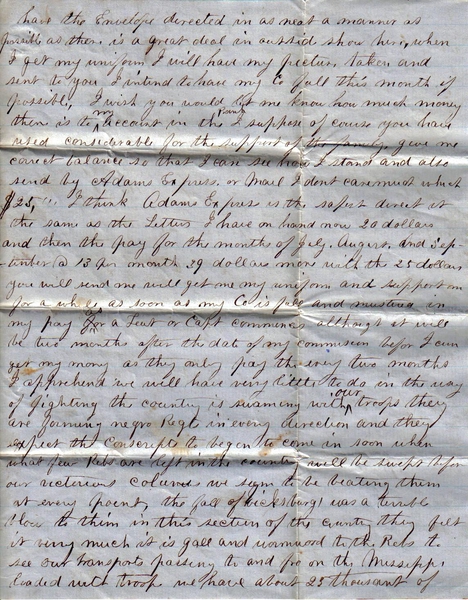 have the Envelope directed in as neat a manner as
possible as there is a great deal in outsid show her, when
I get my uniform I will have my pictur taken and
sent to you I intend to have my Co full this month if
possible, I wish you would let me know how much money
there is to my account in the Bank I suppose of course you have
used considerable for the support of the family, give me
corect balance so that I can see how I stand and also
send by Adams Express or Mail I dont care much which
$25, I think Adams Expres is the safest direct it
the same as the Letters I have on hand now 20 dollars
and then the pay for the months of July, August, and Sep-
tember @ 13 per month 39 dollars more with the 25 dollars
you will send me will get me my uniform and support me
for a while as soon as my Co is full and mustered in
my pay as a Leut or Capt commences although it will
be two months after the date of my commission befor I can
get my money as they only pay the evry two months
I apprehend we will have very little to do in the way
of fighting the country is swaming with our troops they
are forming negro Regts in every direction and they
expect the Conscripts to begin to come in soon when
what few Rebs are left in the country will be swept befor
our victorious colums we seem to be beating them
at every point, the fall of vicksburg! was a terrible
blow to them in this section of the country they felt
it very much it is gall and wormwood to the Rebs to
see our transports passing to and fro on the Missippi
loaded with troops we have about 25 thousand of